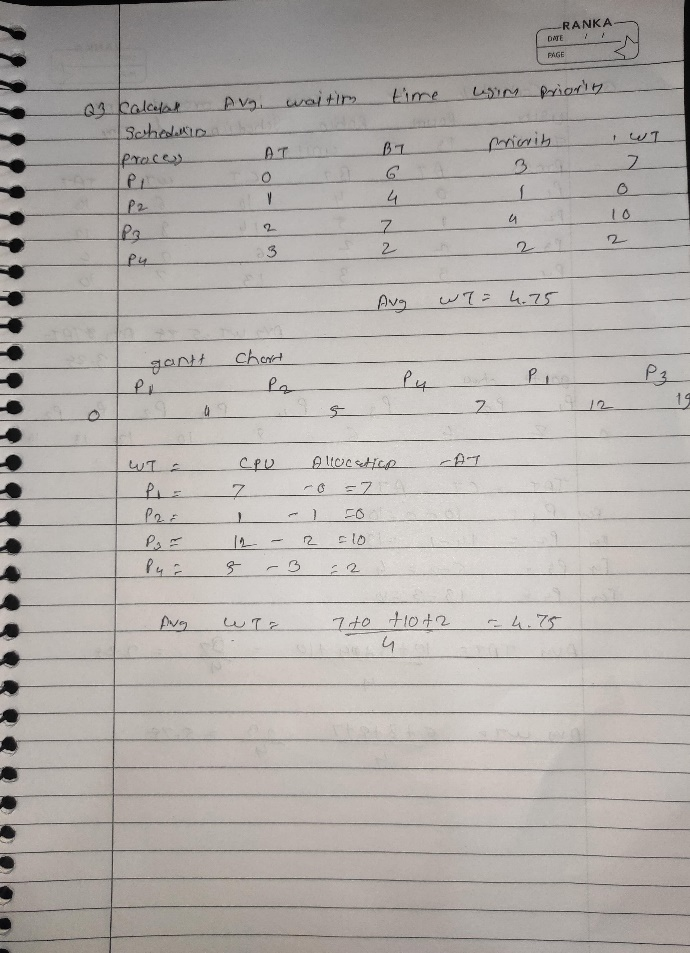 RANKA
DATE / /
PAGE
Q3 Calculate Avg. waiting time using priority
Scheduling
process AT BT priority WT
P1 0 6 3 7
P2 1 4 1 0
P3 2 7 4 10
P4 3 2 2 2
Avg WT = 4.75
gantt Chart
P1 P2 P4 P1 P3
0 1 5 7 12 19
WT = CPU Allocation - AT
P1 = 7 - 0 = 7
P2 = 1 - 1 = 0
P3 = 12 - 2 = 10
P4 = 5 - 3 = 2
Avg WT = 7+0+10+2 = 4.75
4